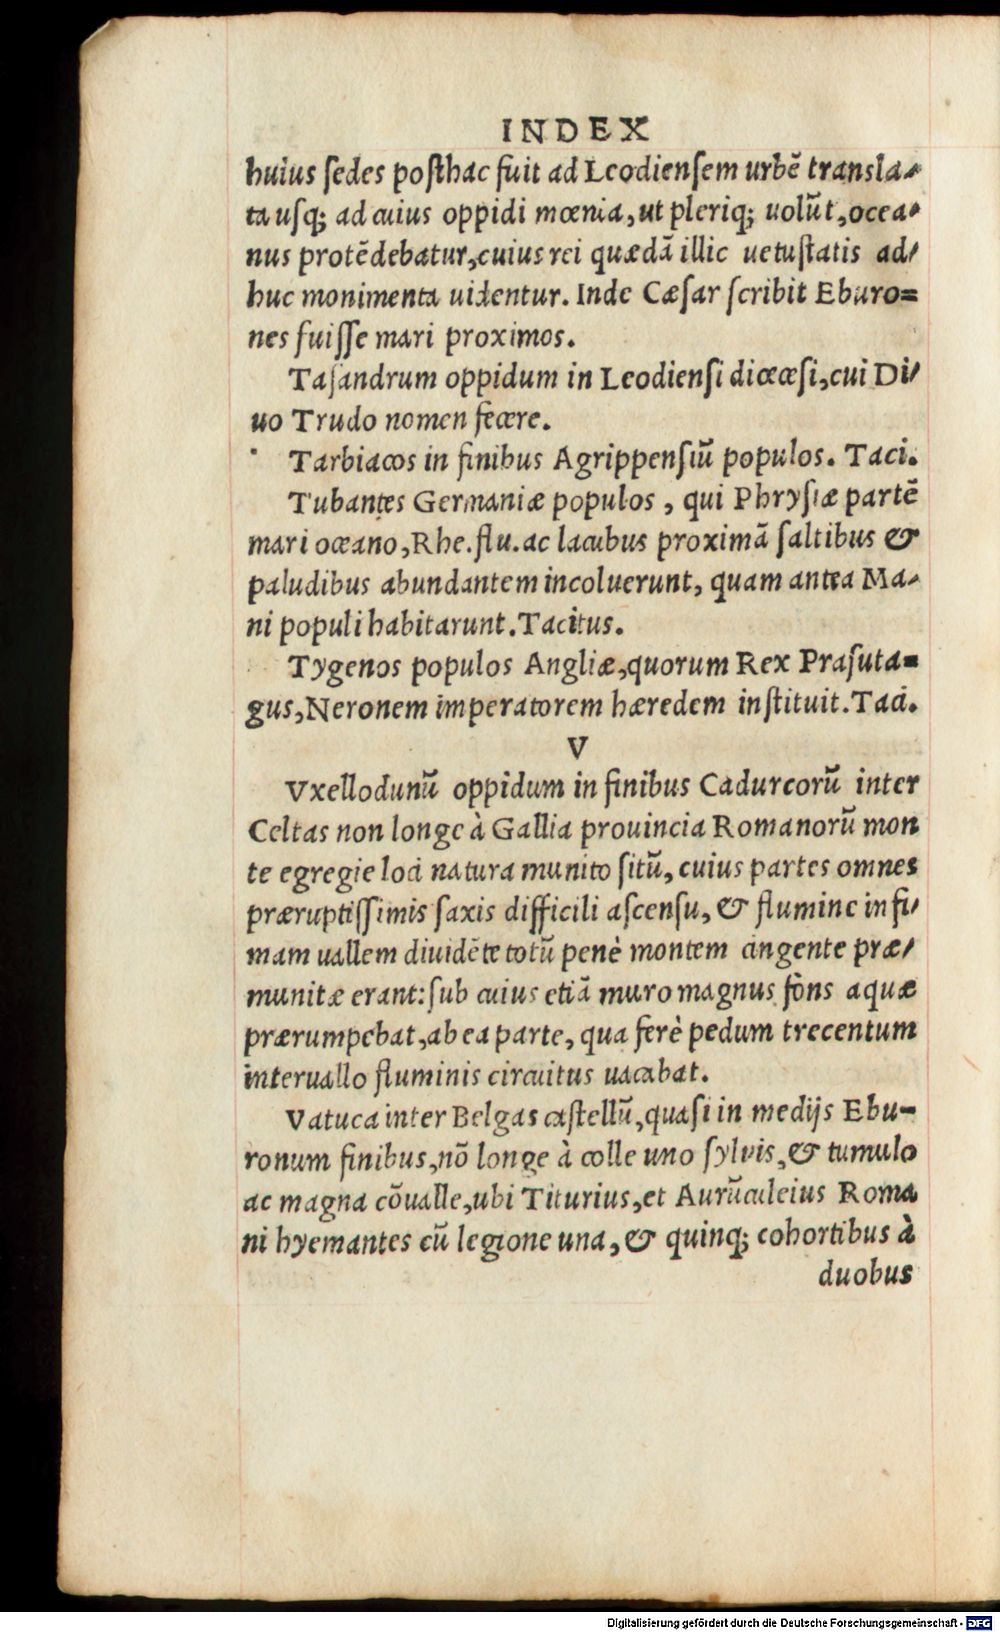 INDEX
huius ſedes poſthac fuit ad Leodienſem urbẽ transla-
ta uſq; ad cuius oppidi mœnia, ut pleriq; uolũt, ocea-
nus protẽdebatur, cuius rei quædã illic uetuſtatis ad-
huc monimenta uidentur. Inde Cæſar ſcribit Eburo=
nes fuiſſe mari proximos.
Taſandrum oppidum in Leodienſi diœceſi, cui Di-
uo Trudo nomen fecere.
Tarbiacos in finibus Agrippenſiũ populos. Taci.
Tubantes Germaniæ populos, qui Phryſiæ partẽ
mari oceano, Rhe. flu. ac lacubus proximã ſaltibus &
paludibus abundantem incoluerunt, quam antea Ma-
ni populi habitarunt. Tacitus.
Tygenos populos Angliæ, quorum Rex Praſuta=
gus, Neronem imperatorem hæredem inſtituit. Taci.
V
Vxellodunũ oppidum in finibus Cadurcorũ inter
Celtas non longe à Gallia prouincia Romanorũ mon
te egregie loci natura munito ſitũ, cuius partes omnes
præruptiſſimis ſaxis difficili aſcenſu, & flumine infi-
mam uallem diuidẽte totũ penè montem cingente præ-
munitæ erant: ſub cuius etiã muro magnus fons aquæ
prærumpebat, ab ea parte, qua ferè pedum trecentum
interuallo fluminis circuitus uacabat.
Vatuca inter Belgas caſtellũ, quaſi in medijs Ebu-
ronum finibus, nõ longe à colle uno ſyluis, & tumulo
ac magna cõualle, ubi Titurius, et Aurũculeius Roma
ni hyemantes cũ legione una, & quinq; cohortibus à
duobus
Digitalisierung gefördert durch die Deutsche Forschungsgemeinschaft - DFG